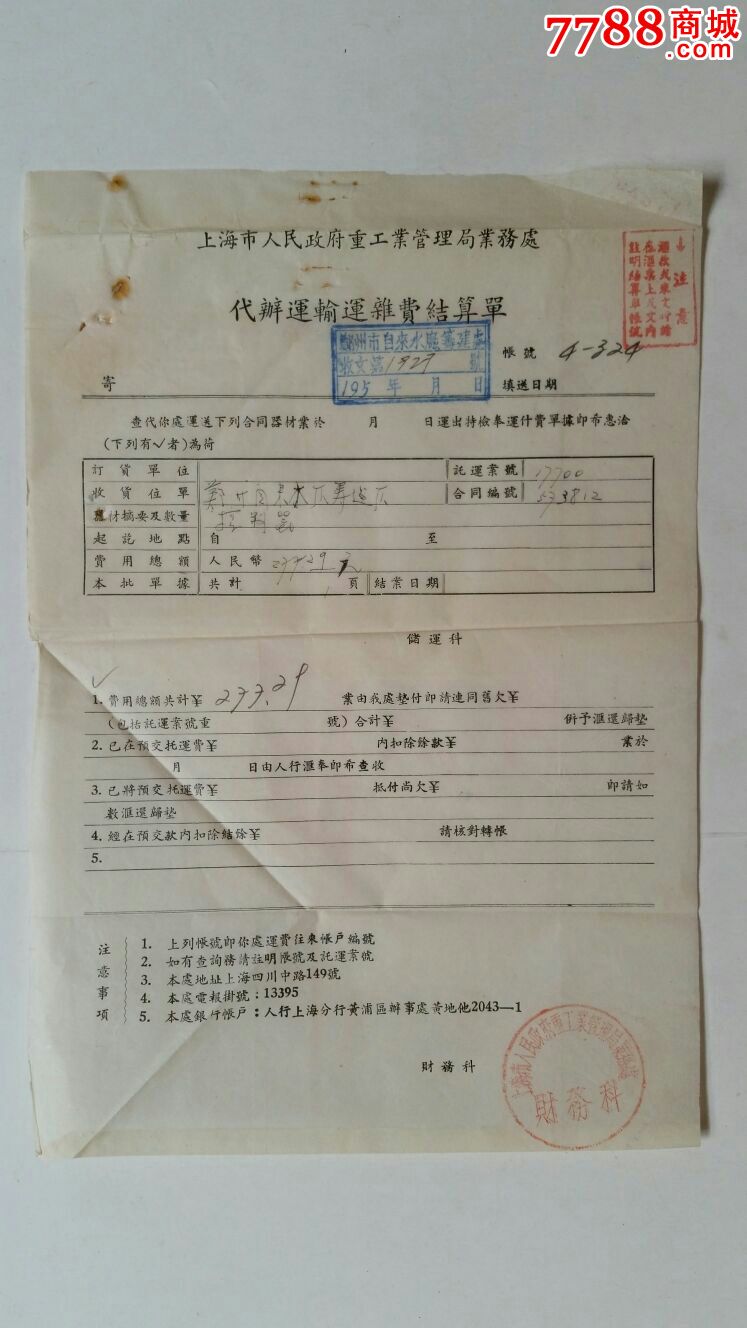 7788商城
.com
上海市人民政府重工業管理局業務處
注意
代辦運輸運雜費結算單
鄭州市自來水廠籌建處
收文第1929號
195 年 月 日
帳號 4-324
寄
填送日期
查代你處運送下列合同器材業於 月 日運出持檢奉運什費單據即布惠洽
(下列有√者)為荷
訂貨單位 託運業號 17700
收貨位單 合同編號 533812
器材摘要及數量
起訖地點 自 至
費用總額 人民幣 元
本批單據 共計 頁 結業日期
儲運科
√
1. 費用總額共計¥ 233.29 業由我處墊付即請連同舊欠¥
(包括託運業號重 號)合計¥ 併予滙還歸墊
2. 已在預交托運費¥ 內扣除餘款¥ 業於
月 日由人行滙奉即布查收
3. 已將預交托運費¥ 抵付尚欠¥ 即請如
數滙還歸墊
4. 經在預交款內扣除結餘¥ 請核對轉帳
5.
注意事項
1. 上列帳號即你處運費往來帳戶編號
2. 如有查詢務請註明帳號及託運業號
3. 本處地址上海四川中路149號
4. 本處電報掛號:13395
5. 本處銀行帳戶:人行上海分行黃浦區辦事處黃地他2043—1
財務科
上海市人民政府重工業管理局業務處
財務科